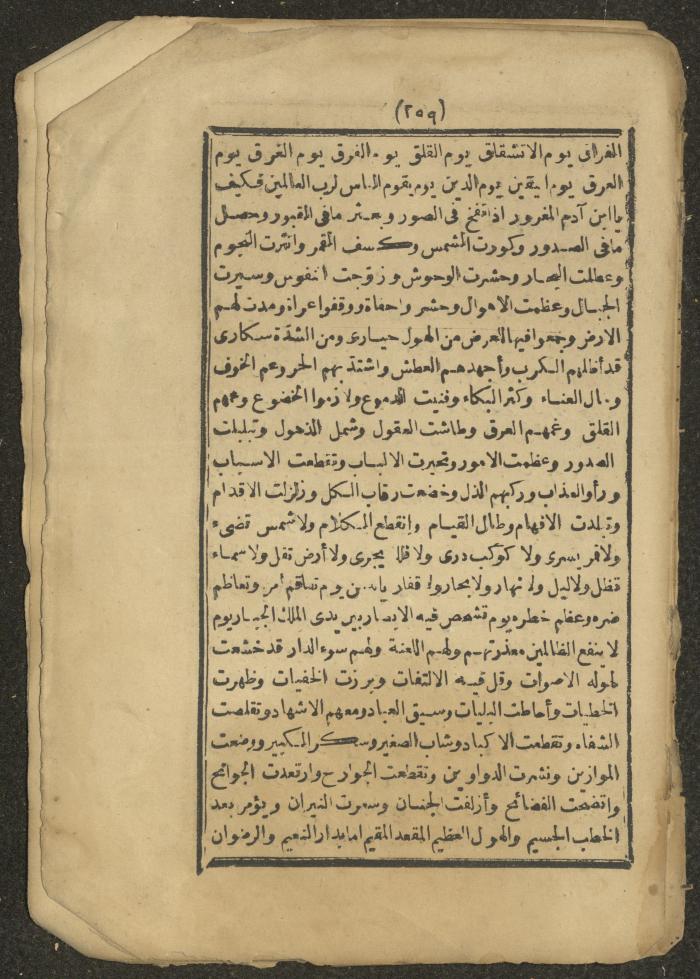 (٢٥٩)
الفراق يوم الانشقاق يوم القلق يوم الفرق يوم الغرق يوم
العرق يوم اليقين يوم الدين يوم يقوم الناس لرب العالمين فكيف
يا ابن آدم المغرور اذا نفخ فى الصور وبعثر مافى القبور وحصل
مافى الصدور وكورت الشمس وكسف القمر وانتثرت النجوم
وعطلت البحار وحشرت الوحوش وزوجت النفوس وسيرت
الجبال وعظمت الاهوال وحشروا حفاة ووقفوا عراة ومدت لهم
الارض وجمعوا فيها للعرض من الهول حيارى ومن الشدة سكارى
قد أظلهم الكرب وأجهدهم العطش واشتد بهم الحر وعم الخوف
وطال العناء وكثر البكاء وفنيت الدموع ولازموا الخضوع وعمهم
القلق وغمهم العرق وطاشت العقول وشمل الذهول وتبلبلت
الصدور وعظمت الامور وتحيرت الالباب وتقطعت الاسباب
ورأوا العذاب وركبهم الذل وخضعت رقاب الكل وزلزلت الاقدام
وتبلدت الافهام وطال القيام وانقطع الكلام ولا شمس تضىء
ولا قمر يسرى ولا كوكب درى ولا فلك يجرى ولا أرض تقل ولا سماء
تظل ولا ليل ولا نهار ولا بحار ولا قفار يا من يوم تفاقم أمره وتعاظم
ضره وعظم خطره يوم تشخص فيه الابصار بين يدى الملك الجبار يوم
لا ينفع الظالمين معذرتهم ولهم اللعنة ولهم سوء الدار قد خشعت
لهوله الاصوات وقل فيه الالتفات وبرزت الخفيات وظهرت
الخطيات وأحاطت البليات وسيق العباد ومعهم الاشهاد وتقلصت
الشفاه وتقطعت الاكباد وشاب الصغير وسكر الكبير ووضعت
الموازين ونشرت الدواوين وتقطعت الجوارح وارتعدت الجوانح
واتضحت الفضائح وأزلفت الجنان وسعرت النيران ويؤمر بعد
الخطب الجسيم والهول العظيم المقعد المقيم اما بدار النعيم والرضوان